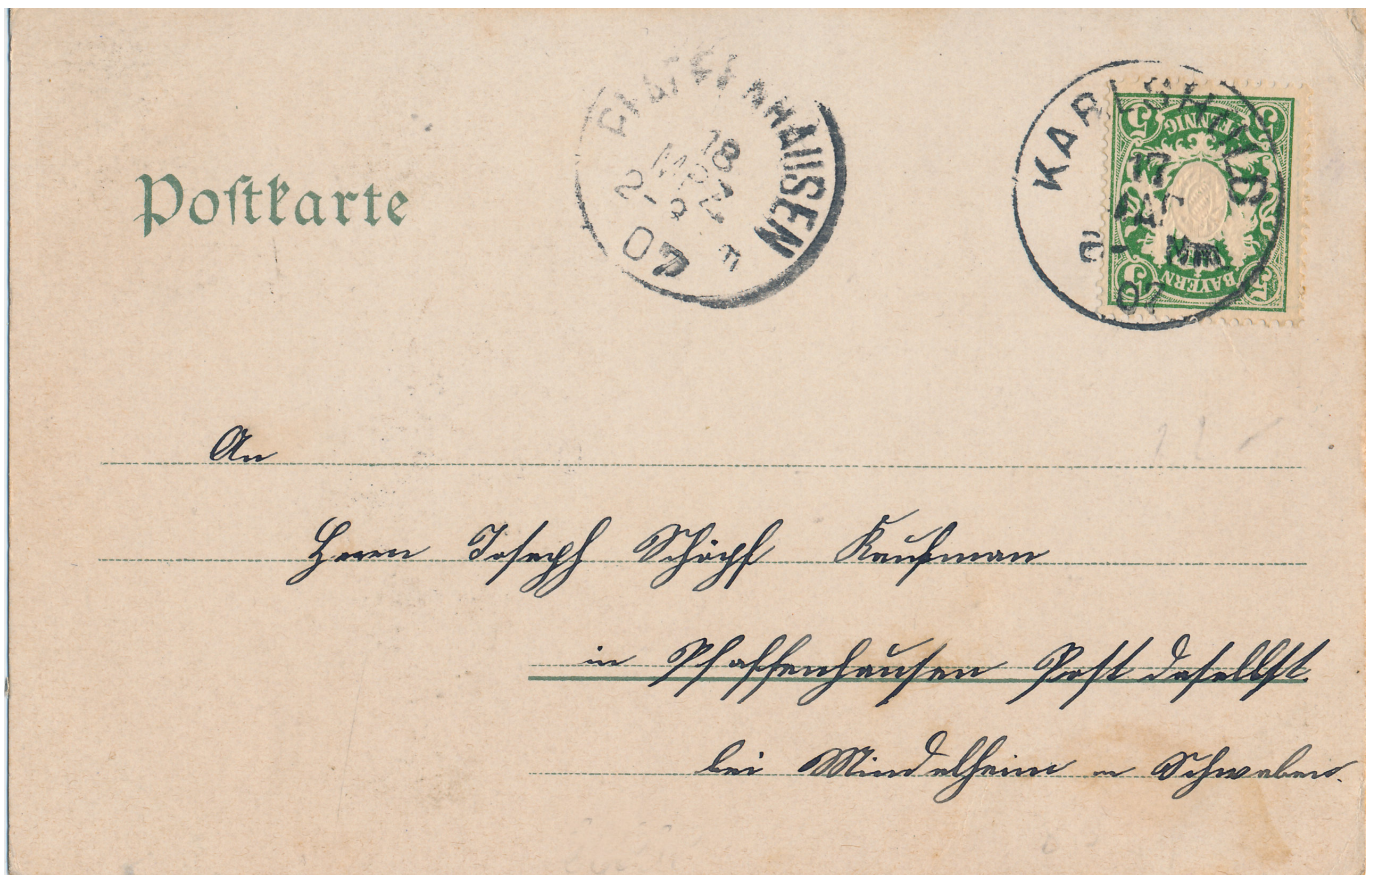 Postkarte
PFAFFENHAUSEN
18
MRZ
2-3
07
KARLSHULD
17
2- Nm.
07
5 PFENNIG 5
5 BAYERN 5
An
Herrn Joseph Schöpf Kaufman
in Pfaffenhausen Post daselbst
bei Mindelheim in Schwaben.